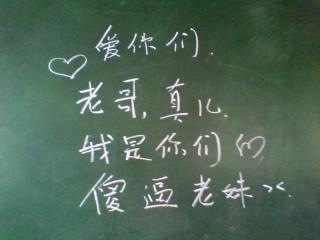 爱你们.
老哥,真儿.
我是你们的
傻逼老妹><.